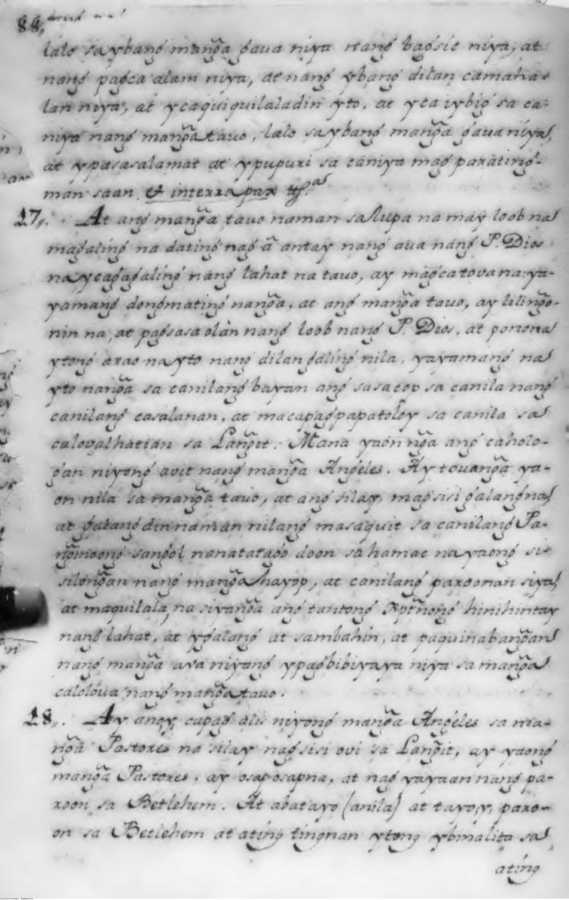 88.
lalo sa ybang manga gaua niya nang bagsic niya, at
nang pagca alam niya, at nang ybang dilan camaha-
lan niya, at ycaquiquilaladin yto, at yca vybig sa ca-
niya nang manga tauo, lalo sa ybang manga gaua niya,
at ypasasalamat at ypupuri sa caniya mag paratíng
man saan et in terra pax
17. At ang manga tauo naman sa Lupa na may loob na
magaling na dating nag a antay nang aua nang P. Dios
na ycagagaling nang lahat na tauo, ay magcatouana, ya-
yamang dongmating nanga, at ang manga tauo, ay lilingo-
nin na, at pagsasaolan nang loob nang P. Dios, at ponona
ytong arao na yto nang dilan galing nila, yayamang na
yto nanga sa canilang bayan ang sasacop sa canila nang
canilang casalanan, at macapagpapatoloy sa canila sa
caloualhatian sa Langit. Mana yaon nga ang caholo-
gan niyong auit nang manga Angeles. Ay touanga ya-
on nila sa manga tauo, at ang silay magsisi galang na,
at gayang din naman nilang masaquit sa canilang Pa-
nginoong sangol nanatatago doon sa hamac na yaong si-
silongan nang manga hayop, at canilang paroonan siya,
at maquilala, na siyanga ang tantong hinihintay
nang lahat, at ygalang at sambahin, at paquinabangan
nang manga aua niyang ypagbibiyaya niya sa manga
caloloua nang manga tauo.
18. Ay anoy, capag alis niyong manga Angeles sa ma-
nga Pastores na silay nagsisi ovi sa Langit, ay yaong
manga Pastores, ay osap osapna, at nag yayaan nang pa-
roon sa Betlehem. At abatayo (anila) at tayoy, paro-
on sa Betlehem at ating tingnan ytong ybinalita sa
ating